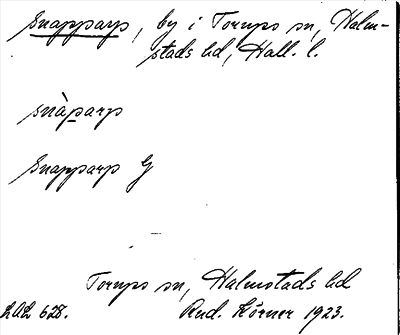 Snapparp, by i Torups sn, Halm-
stads hd, Hall. l.
snàparp
Snapparp G
Torups sn, Halmstads hd
LAL 628.
Rud. Körner 1923.